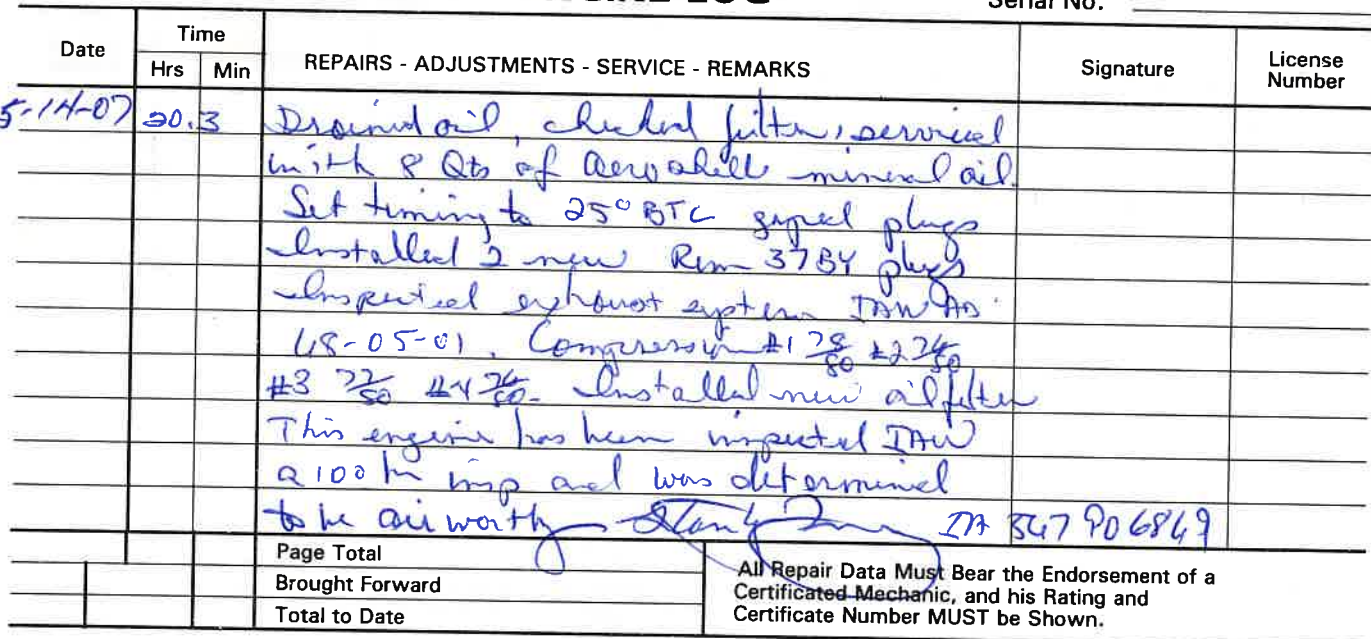 LOG
Serial No.
Date
Time
Hrs Min
REPAIRS - ADJUSTMENTS - SERVICE - REMARKS
Signature
License
Number
5-14-07 20.3 Drained oil, checked filter, serviced
with 8 Qts of Aeroshell mineral oil.
Set timing to 25° BTC gaped plugs
Installed 2 new Rem 37BY plugs
Inspected exhaust system IAW AD
68-05-01. Compression #1 78/80 #2 76/80
#3 72/80 #4 76/80. Installed new oil filter
This engine has been inspected IAW
a 100 hr insp and was determined
to be airworthy IA 547906849
Page Total
Brought Forward
Total to Date
All Repair Data Must Bear the Endorsement of a
Certificated Mechanic, and his Rating and
Certificate Number MUST be Shown.